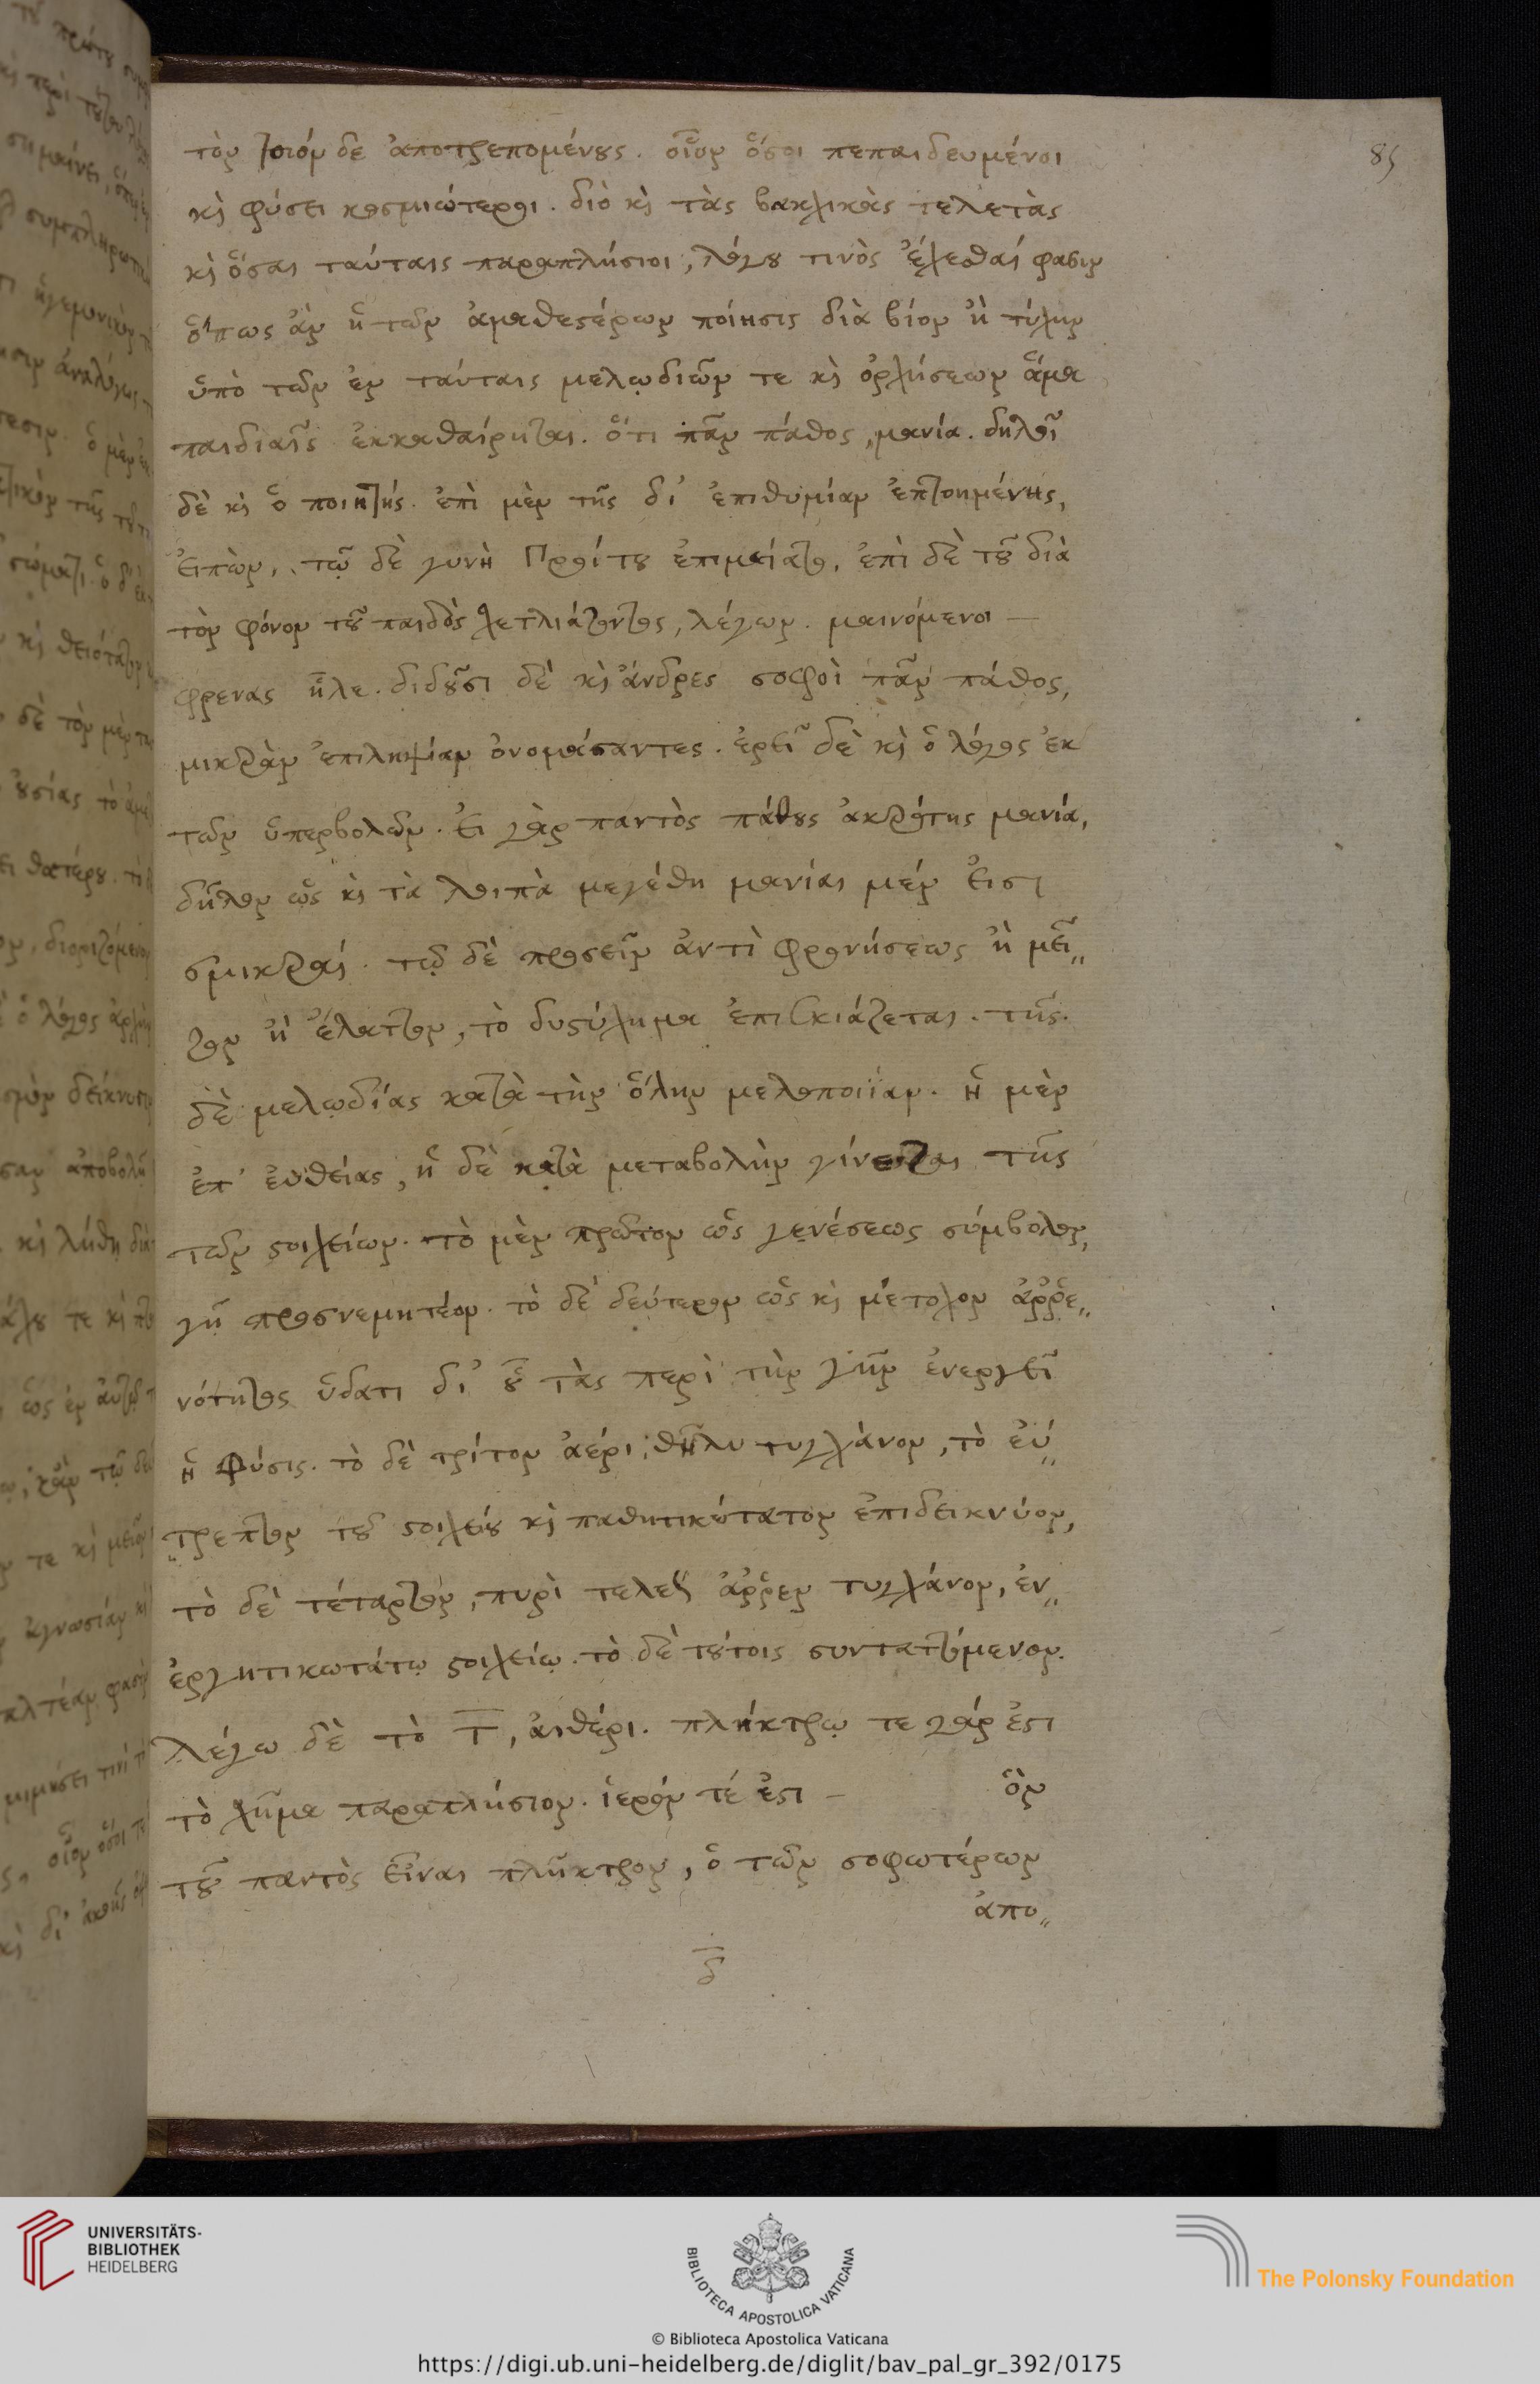 85
τὸν ποιόν δε ἀποτρεπομένους. οἷον ὅσοι πεπαιδευμένοι
κὶ φύσει κοσμιώτεροι. διὸ κὶ τὰς βακχικὰς τελετὰς
κὶ ὅσαι ταύταις παραπλήσιοι, λόγου τινὸς ἔχεσθαί φασιν
ὅπως ἂν ἡ τῶν ἀμαθεστέρων ποίησις διὰ βίον ἢ τύχην
ὑπὸ τῶν ἐν ταύταις μελῳδιῶν τε κὶ ὀρχήσεων ἅμα
παιδιαῖς ἐκκαθαίρηται. ὅτι πᾶν πάθος, μανία. δηλοῖ
δὲ κὶ ὁ ποιητής. ἐπὶ μὲν τῆς δι' ἐπιθυμίαν ἐπτοημένης,
εἰπὼν, τῷ δὲ γυνὴ Προίτου ἐπιμείατο, ἐπὶ δὲ τοῦ διὰ
τὸν φόνον τοῦ παιδὸς χετλιάζοντος, λέγων. μαινόμενοι —
φρενας ἦλε. διδοῦσι δὲ κὶ ἄνδρες σοφοὶ πᾶν πάθος,
μικρὰν ἐπιληψίαν ὀνομάσαντες. ἐρεῖ δὲ κὶ ὁ λόγος ἐκ
τῶν ὑπερβολῶν. εἰ γὰρ παντὸς πάθους ἀκρότης μανία,
δῆλον ὡς κὶ τὰ λοιπὰ μεγέθη μανίαι μέν εἰσι
σμικραί. τῷ δὲ προσεῖν ἀντὶ φρονήσεως ἢ μεῖ„
ζον ἢ ἔλαττον, τὸ δυστύχημα ἐπισκιάζεται. τῆς
δὲ μελῳδίας κατὰ τὴν ὅλην μελοποιΐαν. ἡ μὲν
ἐπ' εὐθείας, ἡ δὲ κατὰ μεταβολὴν γίνεται τῆς
τῶν στοιχείων. τὸ μὲν πρῶτον ὡς γενέσεως σύμβολον,
γῇ προσνεμητέον. τὸ δὲ δεύτερον ὡς κὶ μέτοχον ἀῤῥε„
νότητος ὕδατι δι' οὗ τὰς περὶ τὴν γῆν ἐνεργεῖ
ἡ φύσις. τὸ δὲ τρίτον ἀέρι, θῆλυ τυγχάνον, τὸ εὔ„
„τρεπτον τοῦ στοιχείου κὶ παθητικώτατον ἐπιδεικνύον,
τὸ δὲ τέταρτον, πυρὶ τελεῖ ἄῤῥεν τυγχάνον, ἐν„
εργητικωτάτῳ στοιχείῳ. τὸ δὲ τούτοις συντατόμενον.
λέγω δὲ τὸ Τ, αἰθέρι. πλήκτρῳ τε γάρ ἐστι
τὸ χῆμα παραπλήσιον. ἱερόν τέ ἐστι — ὃν
τοῦ παντὸς εἶναι πλῆκτρον, ὁ τῶν σοφωτέρων
ἀπο„
δ
UNIVERSITÄTS-
BIBLIOTHEK
HEIDELBERG
BIBLIOTECA APOSTOLICA VATICANA
© Biblioteca Apostolica Vaticana
The Polonsky Foundation
https://digi.ub.uni-heidelberg.de/diglit/bav_pal_gr_392/0175